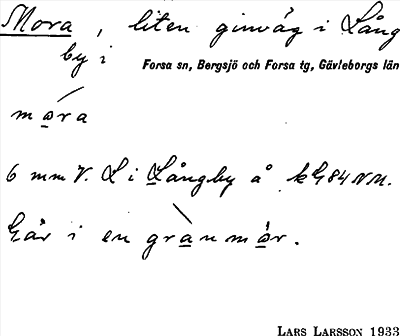 Mora, liten ginväg i Lång
by i
Forsa sn, Bergsjö och Forsa tg, Gävleborgs län
mora
6 mm V. L i Långby å kG84NM.
Går i en granmor.
LARS LARSSON 1933